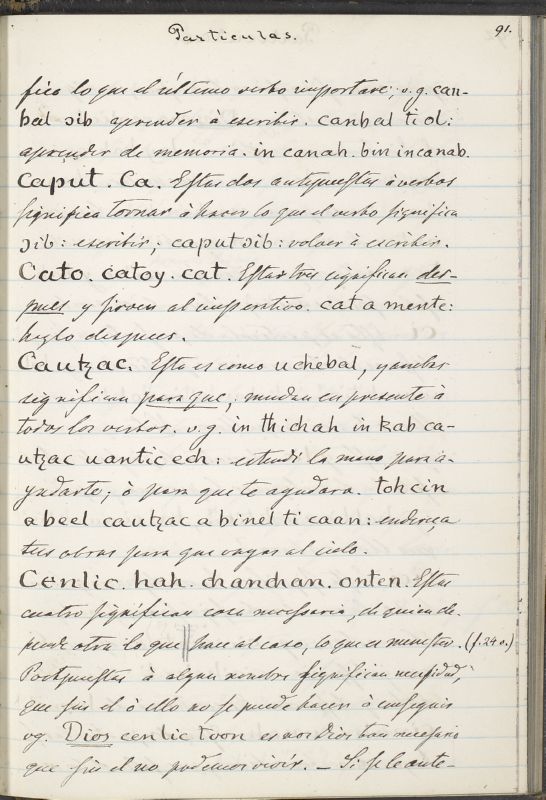 Particulas.
91.
fica lo que el último verbo importare; v.g. can-
bal ɔib aprender à escribir. canbal ti ol:
aprender de memoria. in canah. bin in canab.
Caput. Ca. Estas dos antepuestas à verbos
significa tornar à hacer lo que el verbo significa
ɔib: escribir; caput ɔib: volver à escribir.
Cato. catoy. cat. Estas tres significan des-
pues y sirven al imperativo. cat a mente:
hazlo despues.
Cautzac. Esta es como uchebal, y ambas
significan para que; mudan en presente à
todos los verbos. v.g. in thichah in kab ca-
utzac uantic ech: estendi la mano para a-
yudarte; ò para que te ayudara. tohcin
a beel cautzac a binel ti caan: endereça
tus obras para que vayas al cielo.
Cenlic. hah. chanchan. onten. Estas
cuatro significan cosa necessaria, de quien de-
pende otra lo que hace al caso, lo que es menester. (f. 24 v.)
Postpuestas à algun nombre significan necesidad,
que sin él ò ello no se puede hacer ò conseguir
vg. Dios cenlic toon es nos Dios tan necesario
que sin el no podemos vivir. — Si se le ante-